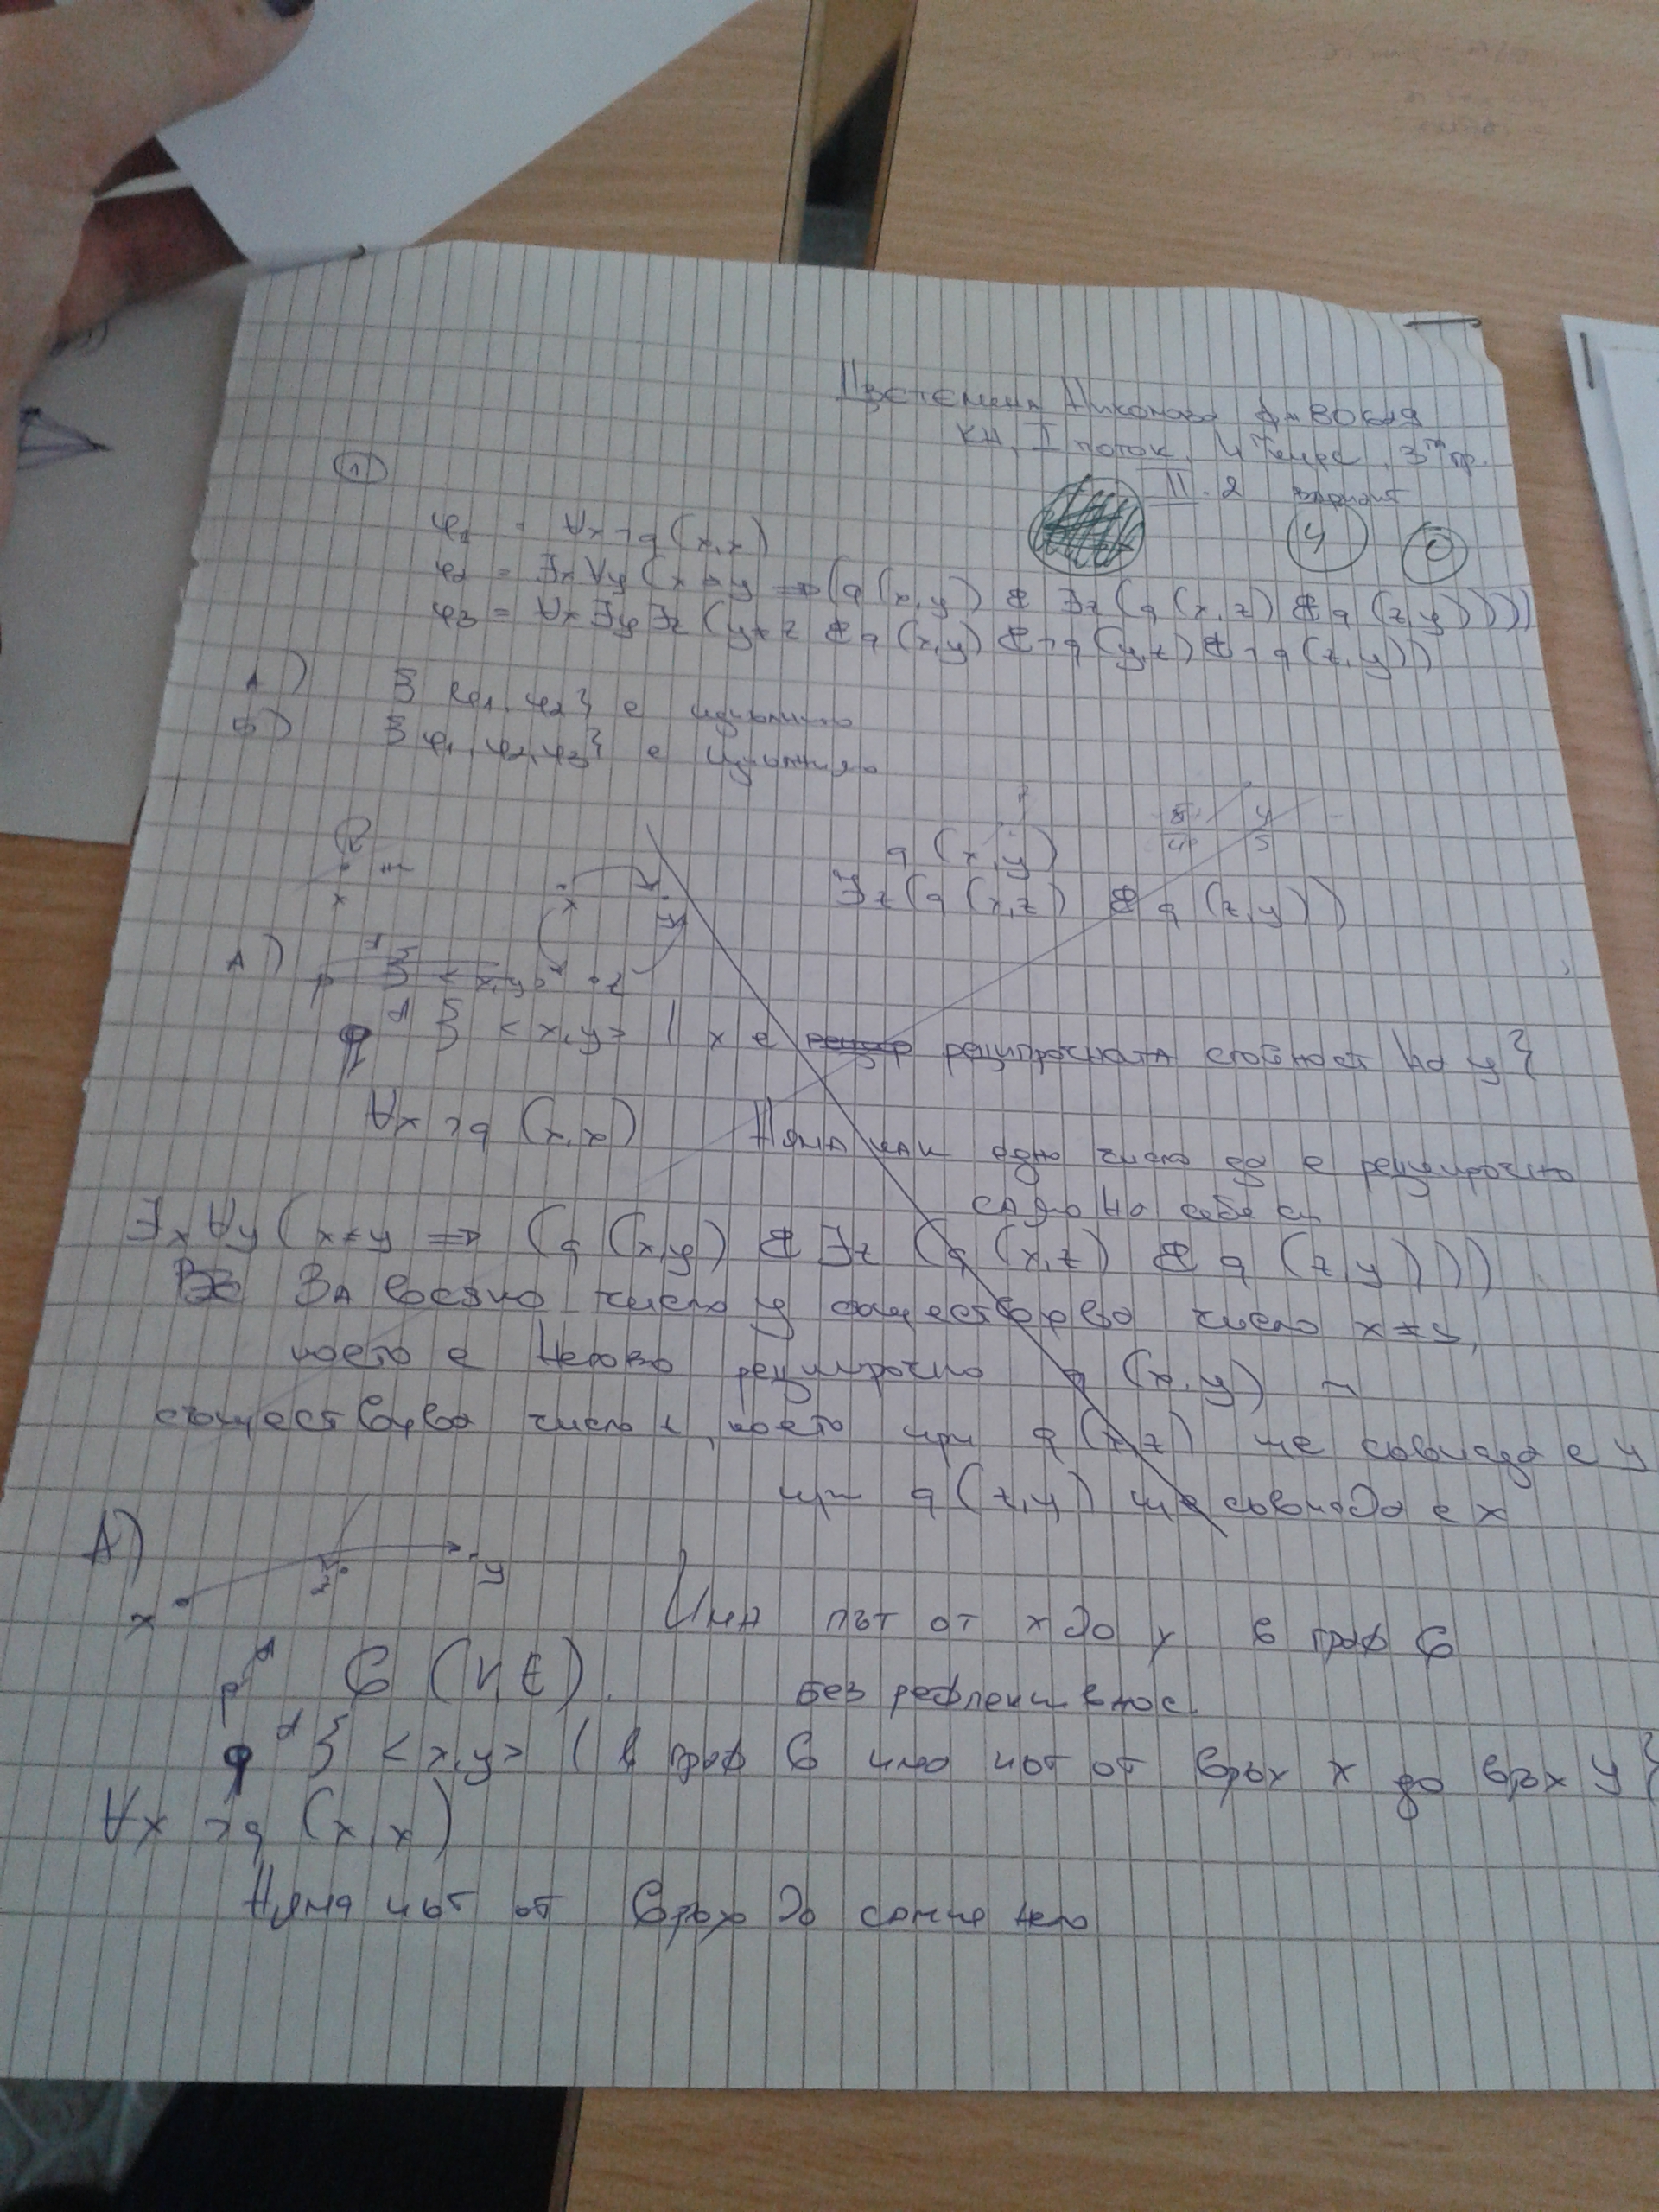 Цветелина Николова ф№ 80619
КН, I поток, 4 курс, 3та гр.
II. 2 вариант
① 4 0
φ1 = ∀x ¬q(x,x)
φ2 = ∃x∀y(x≠y ⇒ (q(x,y) & ∃z(q(x,z) & q(z,y))))
φ3 = ∀x∃y∃z(y≠z & q(x,y) & ¬q(y,z) & ¬q(z,y))
А) {φ1, φ2} е изпълнимо
Б) {φ1, φ2, φ3} е изпълнимо
q(x,y)
∃z(q(x,z) & q(z,y))
x x y z
А) p { <x,y>
q { <x,y> | x е реципрочната стойност на y}
∀x ¬q(x,x) Няма как едно число да е реципрочно
само на себе си
∃x∀y(x≠y ⇒ (q(x,y) & ∃z(q(x,z) & q(z,y))))
За всяко число y съществува число x≠y,
което е негово реципрочно q(x,y) и
съществува число z, което при q(x,z) ще съвпада с y
и при q(z,y) ще съвпада с x
А) x z y
Има път от x до y в граф G
p G(V,E). без рефлексивнос
q { <x,y> | в граф G има път от връх x до връх y}
∀x ¬q(x,x)
Няма път от връх до самия него